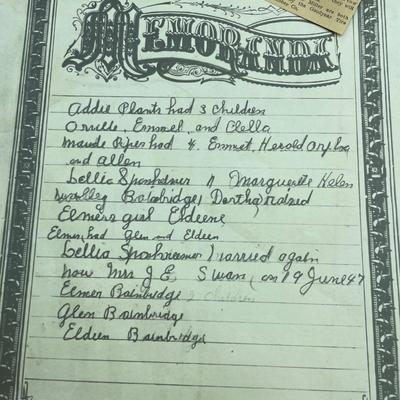 Miller are both
MEMORANDA.
Addie Plants had 3 children
Orville, Emmel, and Clella
Maude Piper had 4. Emmet, Herold Orpha
and Allen
Lellia Sponheimer Marguerite Helen
Bainbridge, Bertha raised
Elmers girl Eldeene
Elmer, had Glen and Eldeen
Lellia Sponheimer married again
now Mrs J. E. Swan, on 19 June 47
Elmer Bainbridge 2 children
Glen Bainbridge
Eldeen Bainbridge